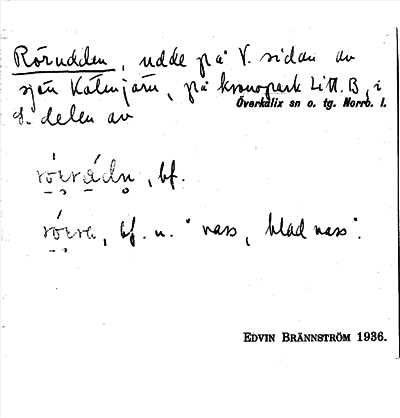 Rörudden, udde på V. sidan av
sjön Kåtnjärn, på kronopark Litt. B, i
S. delen av Överkalix sn o. tg. Norrb. l.
rö́rrådn, bf.
rö́rra, bf. n. "vass, bladvass".
EDVIN BRÄNNSTRÖM 1936.